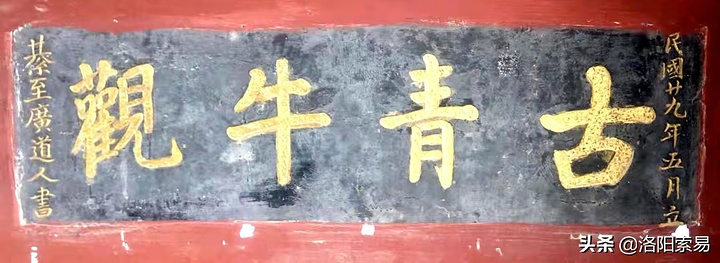 民國廿九年五月立
古青牛觀
綦至廣道人書
头条@洛阳索易